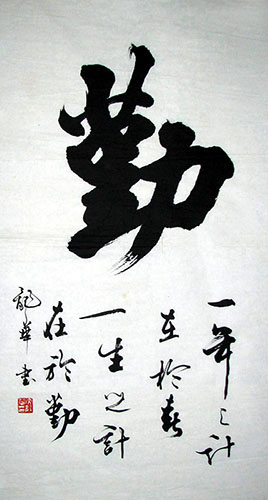 勤
一年之计
在於春
一生之計
在於勤
龍華書